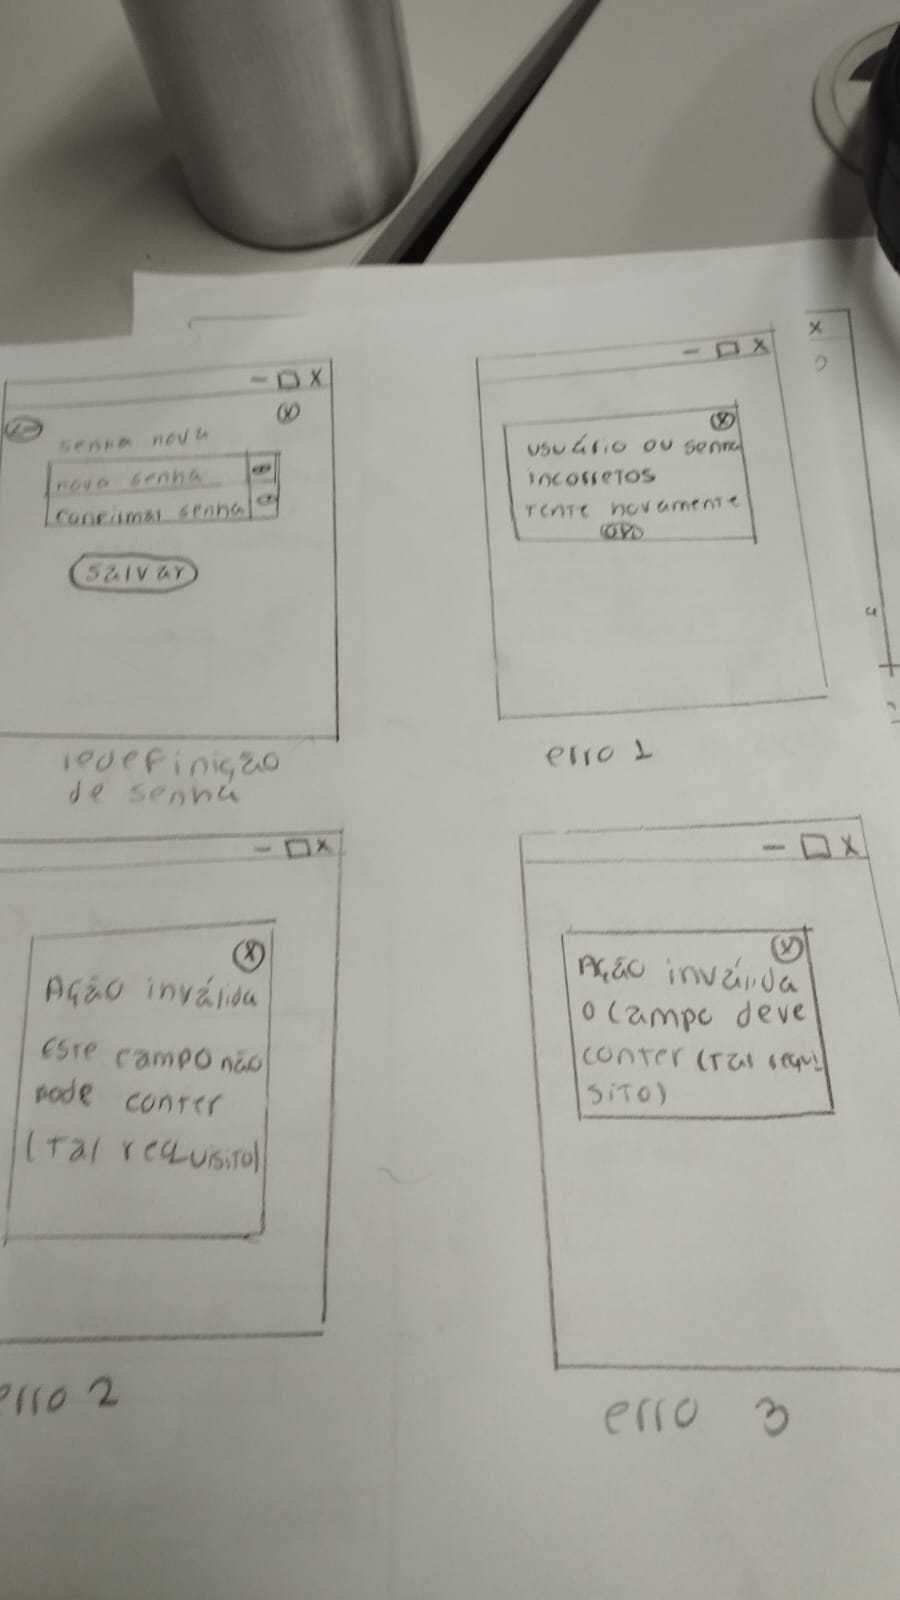 - □ X
X
senha nova
nova senha
confirmar senha
salvar
redefinição
de senha
- □ X
X
usuário ou senha
incorretos
tente novamente
erro 1
X
- □ X
X
Ação inválida
Este campo não
pode conter
(tal requisito)
erro 2
- □ X
X
Ação inválida
o campo deve
conter (tal requi
sito)
erro 3